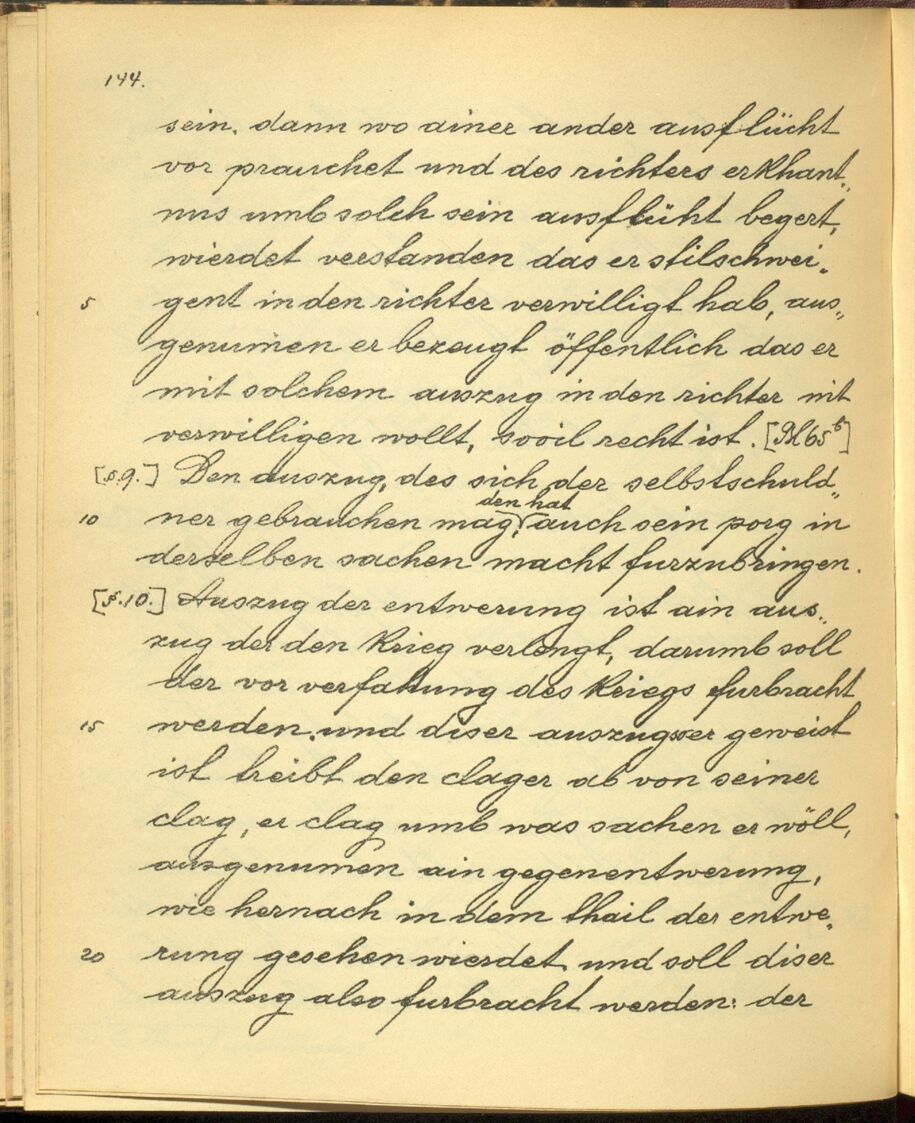 144.
sein. dann wo ainer ander ausflücht
vor prauchet und des richters erkhant„
nus umb solch sein ausflüht begert,
wierdet verstanden das er stilschwei„
5 gent in den richter verwilligt hab, aus„
genumen er bezeugt öffentlich das er
mit solchem auszug in den richter nit
verwilligen wollt, sovil recht ist. [Bl 65ᵇ]
[§.9.] Den auszug, des sich der selbstschuld„
den hat
10 ner gebrauchen mag, auch sein porg in
derselben sachen macht furzubringen.
[§.10.] Auszug der entwerung ist ain aus„
zug der den krieg verlengt, darumb soll
der vor verfahung des kriegs furbracht
15 werden. und diser auszug wer geweist
ist treibt den clager ab von seiner
clag, er clag umb was sachen er wöll,
ausgenumen ain gegenentwerung,
wie hernach in dem thail der entwe„
20 rung gesehen wierdet und soll diser
auszug also furbracht werden: der